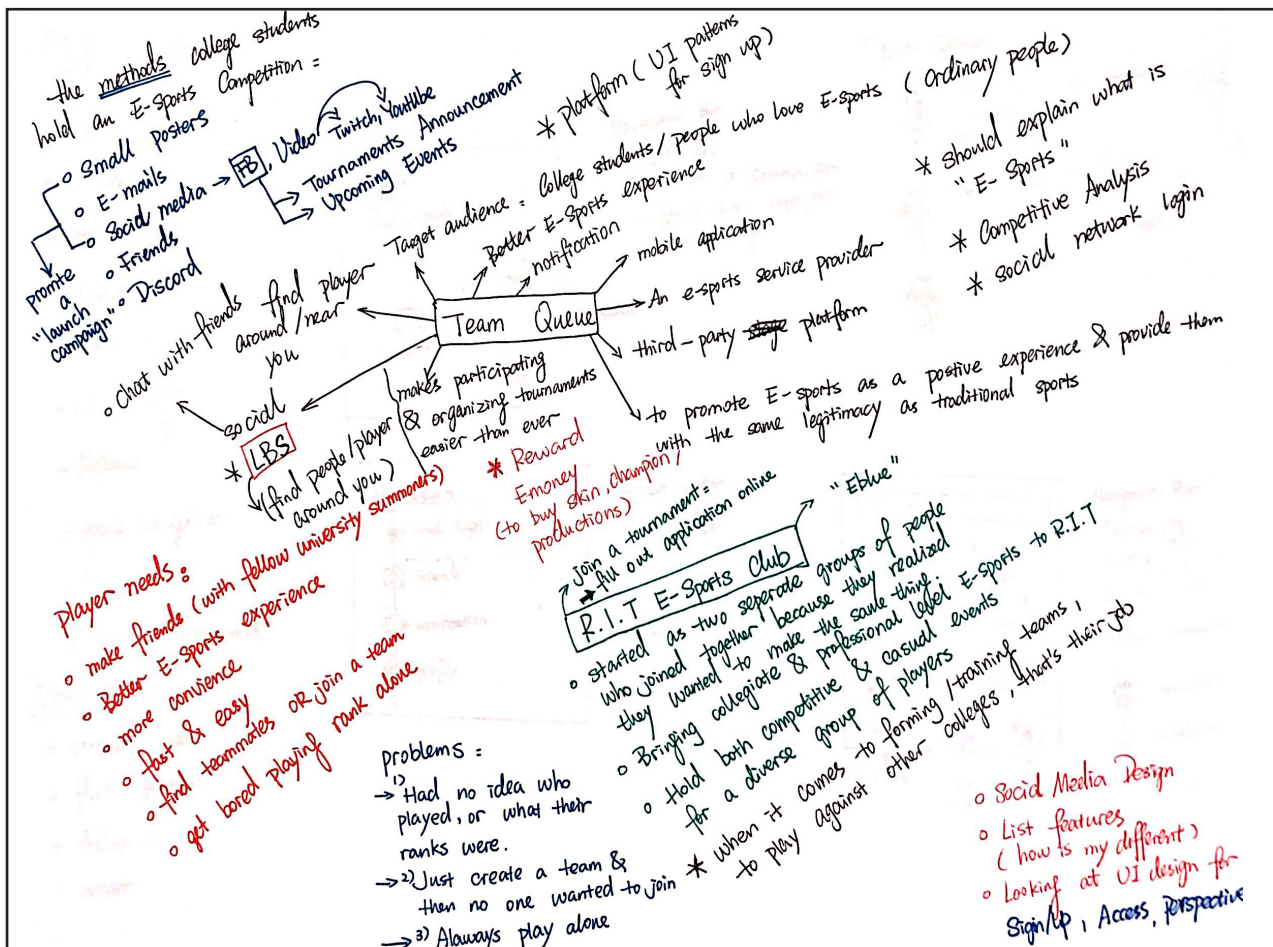 the methods college students
hold an E-Sports Competition =
o Small posters
o E-mails
o Social media → FB, Video Twitch, Youtube
→ Tournaments Announcement
→ Upcoming Events
o Friends
o Discord
promte
a
"launch
campaign"
* platform ( UI patterns
for sign up )
Target audience = College students / people who love E-sports ( ordinary people )
Better E-Sports experience
notification
mobile application
An e-sports service provider
third-party platform
Team Queue
* should explain what is
"E-Sports"
* Competitive Analysis
* social network login
find player
around/near
you
o chat with friends
social
* LBS
(find people/player
around you)
makes participating
& organizing tournaments
easier than ever
to promote E-sports as a postive experience & provide them
with the same legitimacy as traditional sports
* Reward
Emoney
(to buy skin, champion,
productions)
player needs :
o make friends (with fellow university summoners)
o Better E-Sports experience
o more convience
o fast & easy
o find teammates OR join a team
o get bored playing rank alone
join a tournament =
→ fill out application online
"Eblue"
R.I.T E-Sports Club
o started as two seperate groups of people
who joined together because they realized
they wanted to make the same thing
o Bringing collegiate & professional level E-Sports to R.I.T
o Hold both competitive & casual events
for a diverse group of players
* when it comes to forming/training teams,
to play against other colleges, that's their job
problems :
→ 1) Had no idea who
played, or what their
ranks were.
→ 2) Just create a team &
then no one wanted to join
→ 3) Alaways play alone
o Social Media Design
o List features
( how is my different )
o Looking at UI design for
Sign/Up, Access, Perspective